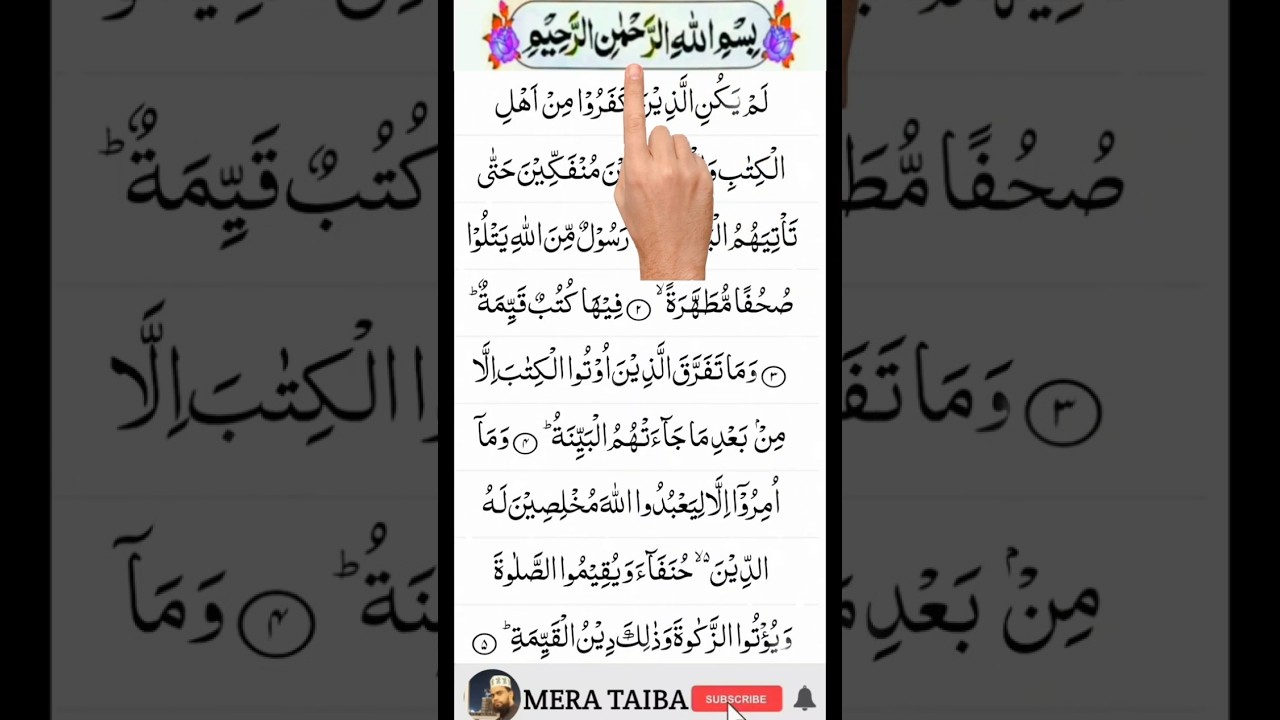 بِسْمِ اللهِ الرَّحْمٰنِ الرَّحِيْمِ
لَمْ يَكُنِ الَّذِيْنَ كَفَرُوْا مِنْ اَهْلِ
الْكِتٰبِ مُنْفَكِّيْنَ حَتّٰى
تَاْتِيَهُمُ رَسُوْلٌ مِّنَ اللهِ يَتْلُوْا
صُحُفًا مُّطَهَّرَةً ۙ ۲ فِيْهَا كُتُبٌ قَيِّمَةٌ ؕ
۳ وَمَا تَفَرَّقَ الَّذِيْنَ اُوْتُوا الْكِتٰبَ اِلَّا
مِنْۢ بَعْدِ مَا جَآءَتْهُمُ الْبَيِّنَةُ ؕ ۴ وَمَآ
اُمِرُوْٓا اِلَّا لِيَعْبُدُوا اللهَ مُخْلِصِيْنَ لَهُ
الدِّيْنَ ۙ۬ حُنَفَآءَ وَيُقِيْمُوا الصَّلٰوةَ
وَيُؤْتُوا الزَّكٰوةَ وَذٰلِكَ دِيْنُ الْقَيِّمَةِ ؕ ۵
MERA TAIBA SUBSCRIBE